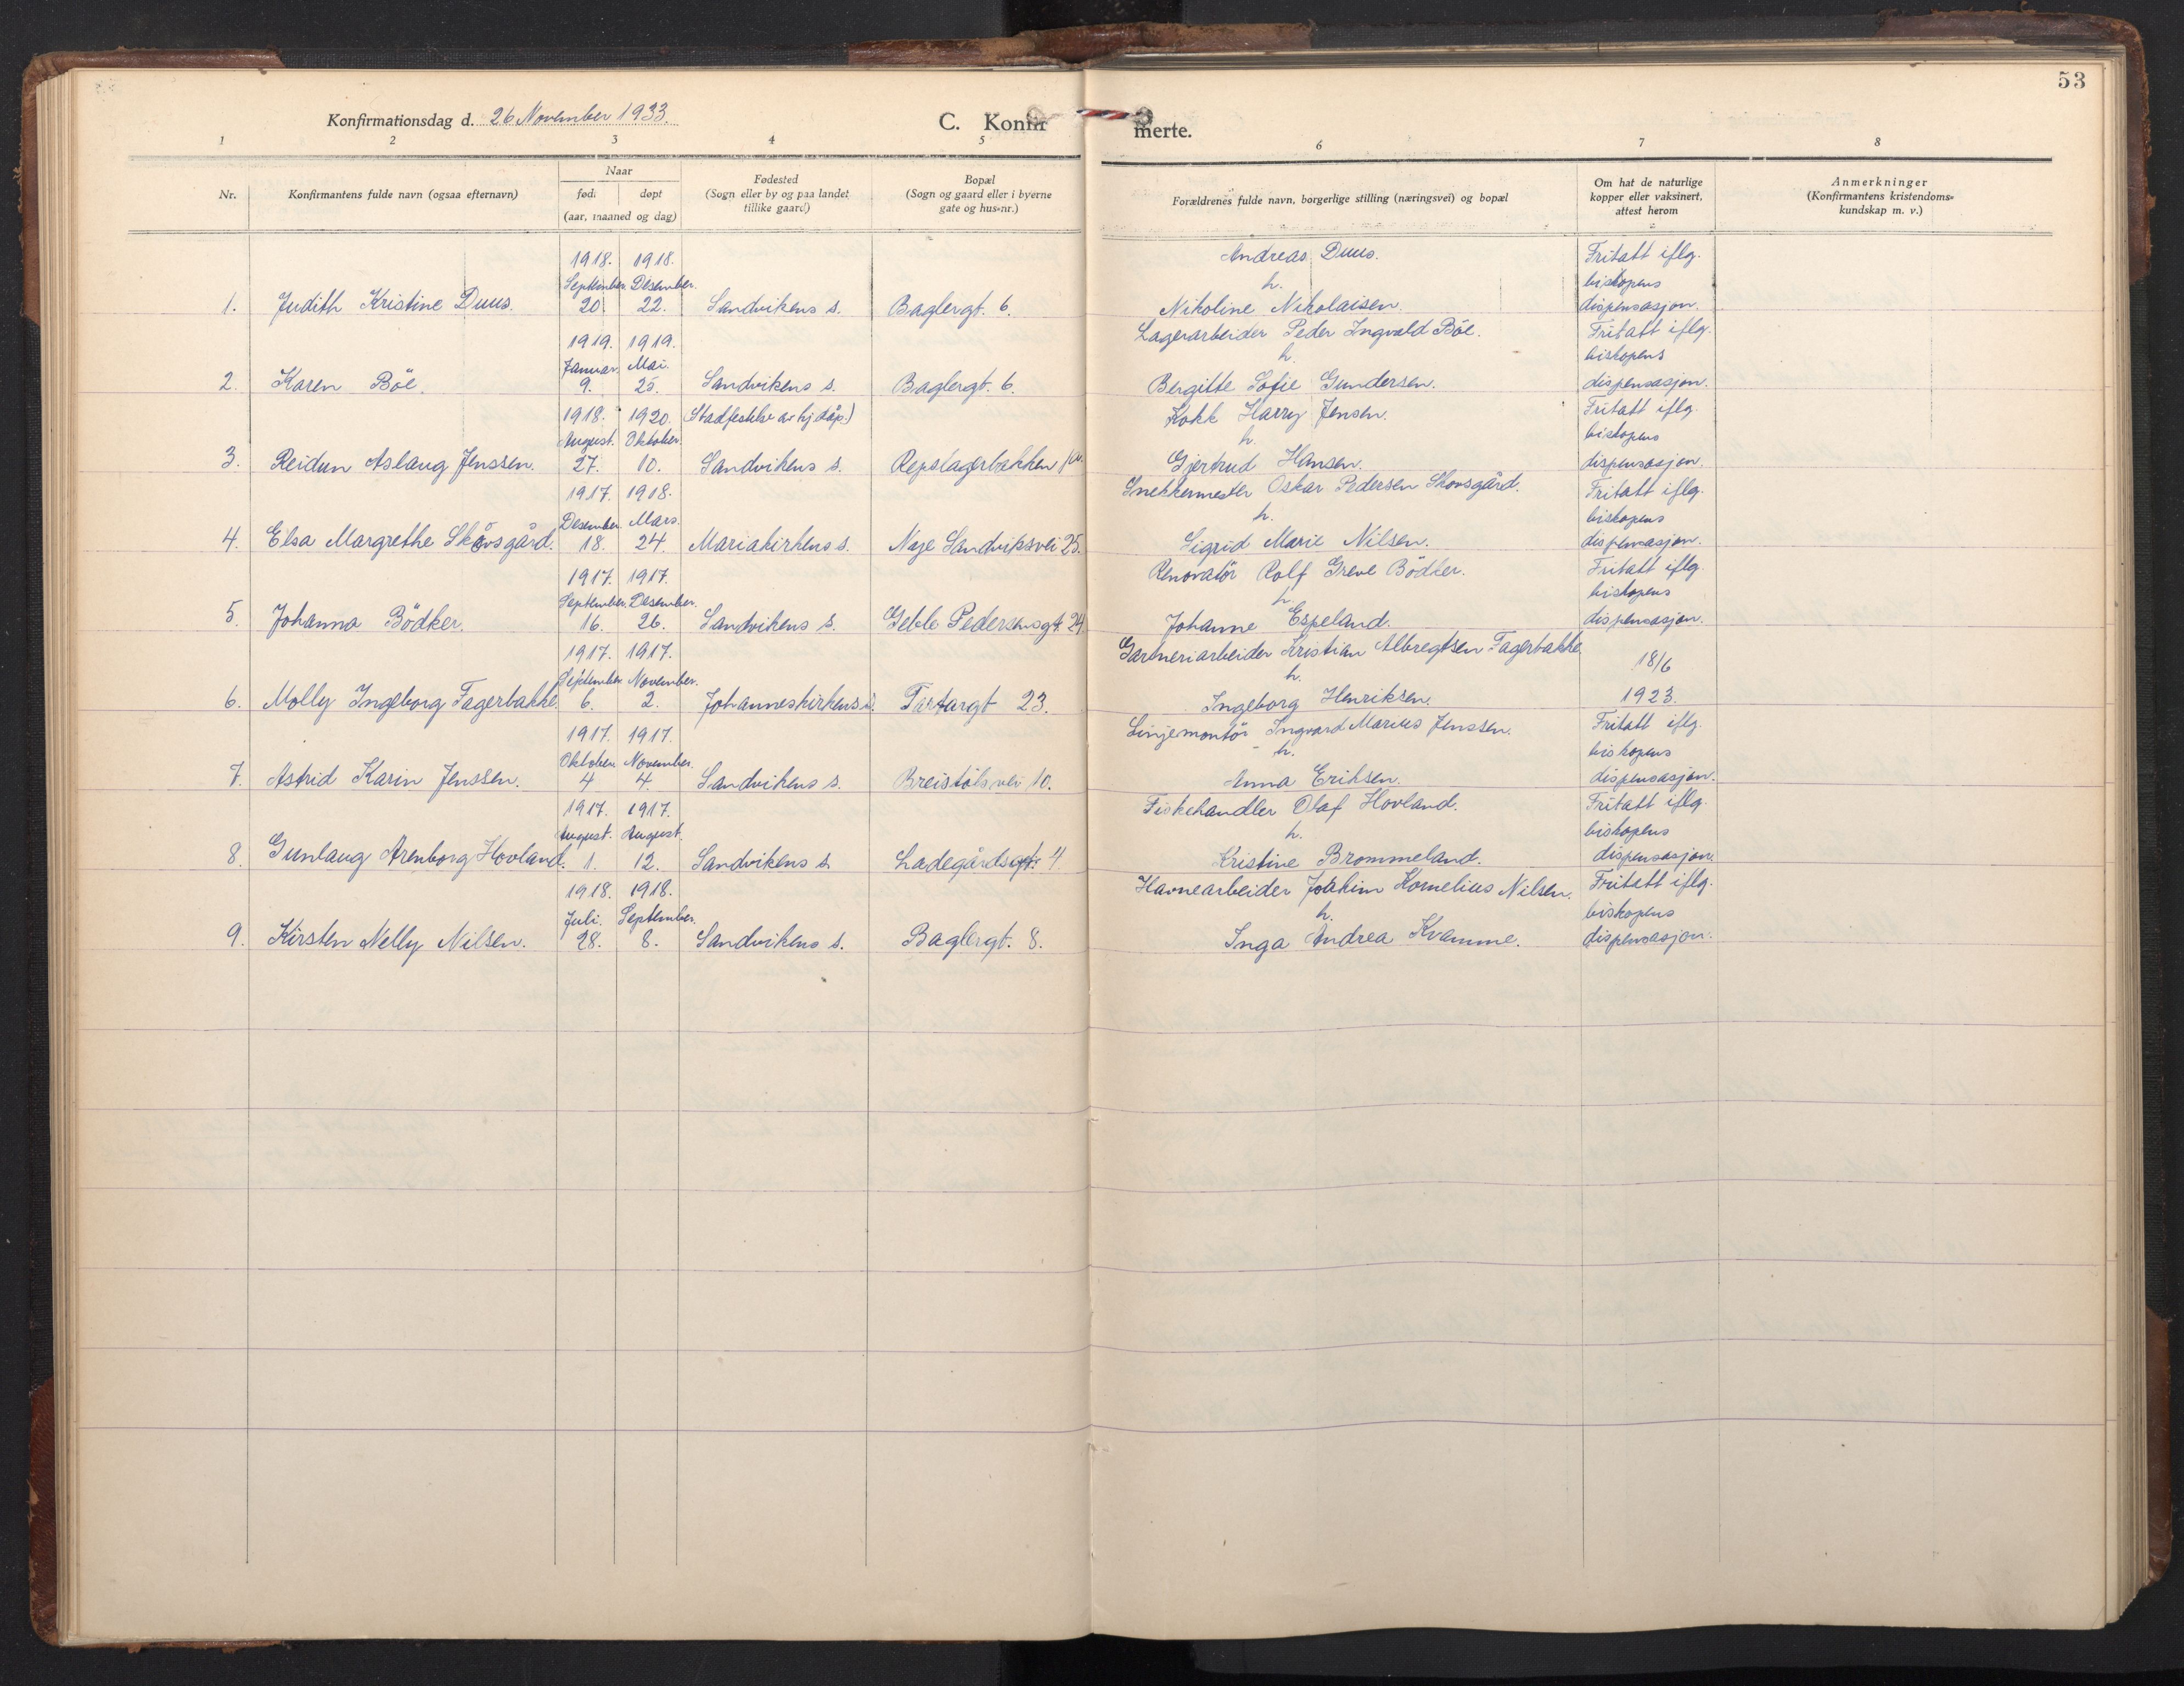 53
Konfirmationsdag d. 26 November 1933.
C. Konfir
merte.
1 2 3 4 5 6 7 8
Nr.
Konfirmantens fulde navn (ogsaa efternavn)
Naar
født
døpt
(aar, maaned og dag)
Fødested
(Sogn eller by og paa landet
tillike gaard)
Bopæl
(Sogn og gaard eller i byerne
gate og hus-nr.)
Forældrenes fulde navn, borgerlige stilling (næringsvei) og bopæl
Om hat de naturlige
kopper eller vaksinert,
attest herom
Anmerkninger
(Konfirmantens kristendoms-
kundskap m. v.)
1918. 1918. Andreas Duus. Fritatt iflg.
September. Desember. h. biskopens
1. Judith Kristine Duus. 20. 22. Sandvikens s. Baglergt. 6. Nikoline Nikolaisen. dispensasjon.
1919. 1919. Lagerarbeider Peder Ingvald Böe. Fritatt iflg.
Januar. Mai. h. biskopens
2. Karen Böe. 9. 25. Sandvikens s. Baglergt. 6. Bergitte Sofie Gundersen. dispensasjon.
1918. 1920. (Stadfestelse av hj.dåp.) Kokk Harry Jensen. Fritatt iflg.
August. Oktober. h. biskopens
3. Reidun Aslaug Jenssen. 27. 10. Sandvikens s. Repslagerbakken Gjertrud Hansen. dispensasjon.
1917. 1918. Snekkermester Oskar Pedersen Skovsgård. Fritatt iflg.
Desember. Mars. h. biskopens
4. Elsa Margrethe Skovsgård. 18. 24. Mariakirkens s. Nye Sandviksvei 25. Sigrid Marie Nilsen. dispensasjon.
1917. 1917. Renovatör Rolf Greve Bödker. Fritatt iflg.
September. Desember. h. biskopens
5. Johanna Bödker. 16. 26. Sandvikens s. Geble Pedersensgt. 24. Johanne Espeland. dispensasjon.
1917. 1917. Gartneriarbeider Kristian Albregtsen Fagerbakke 18/6
September November. h.
6. Molly Ingeborg Fagerbakke 6. 2. Johanneskirkens s. Tartargt 23. Ingeborg Henriksen. 1923.
1917. 1917. Linjemontör Ingvard Marius Jenssen. Fritatt iflg.
Oktober November. h. biskopens
7. Astrid Karin Jenssen. 4 4. Sandvikens s. Breistölsvei 10. Anna Eriksen. dispensasjon.
1917. 1917. Fiskehandler Olaf Hovland. Fritatt iflg.
August. August. h. biskopens
8. Gunlaug Arenborg Hovland. 1. 12. Sandvikens s. Ladegårdsgt. 4 Kristine Brommeland. dispensasjon.
1918. 1918. Havnearbeider Joakim Kornelius Nilsen. Fritatt iflg.
Juli. September. h. biskopens
9. Kirsten Nelly Nilsen. 28. 8. Sandvikens s. Baglergt. 8. Inga Andrea Kvamme. dispensasjon.